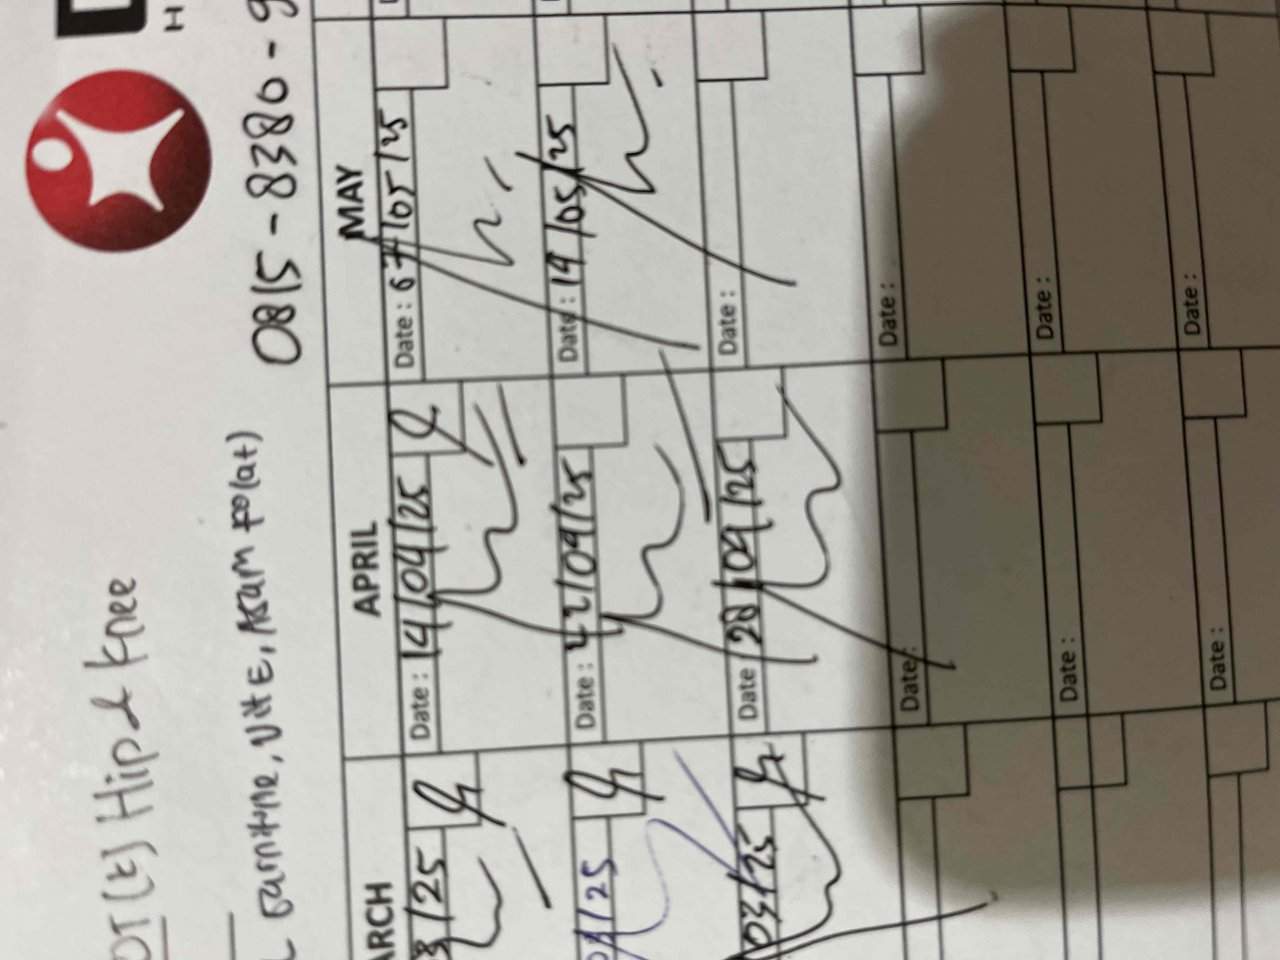 H
OT (t) Hip & Knee
L carnitine, Vit E, Asam folat)
0815-8380-9
ARCH
APRIL
MAY
3/25
Date: 14/04/25
Date: 07/05/25
03/25
Date: 22/04/25
Date: 14/05/25
03/25
Date: 28/04/25
Date:
Date:
Date:
Date:
Date:
Date:
Date: